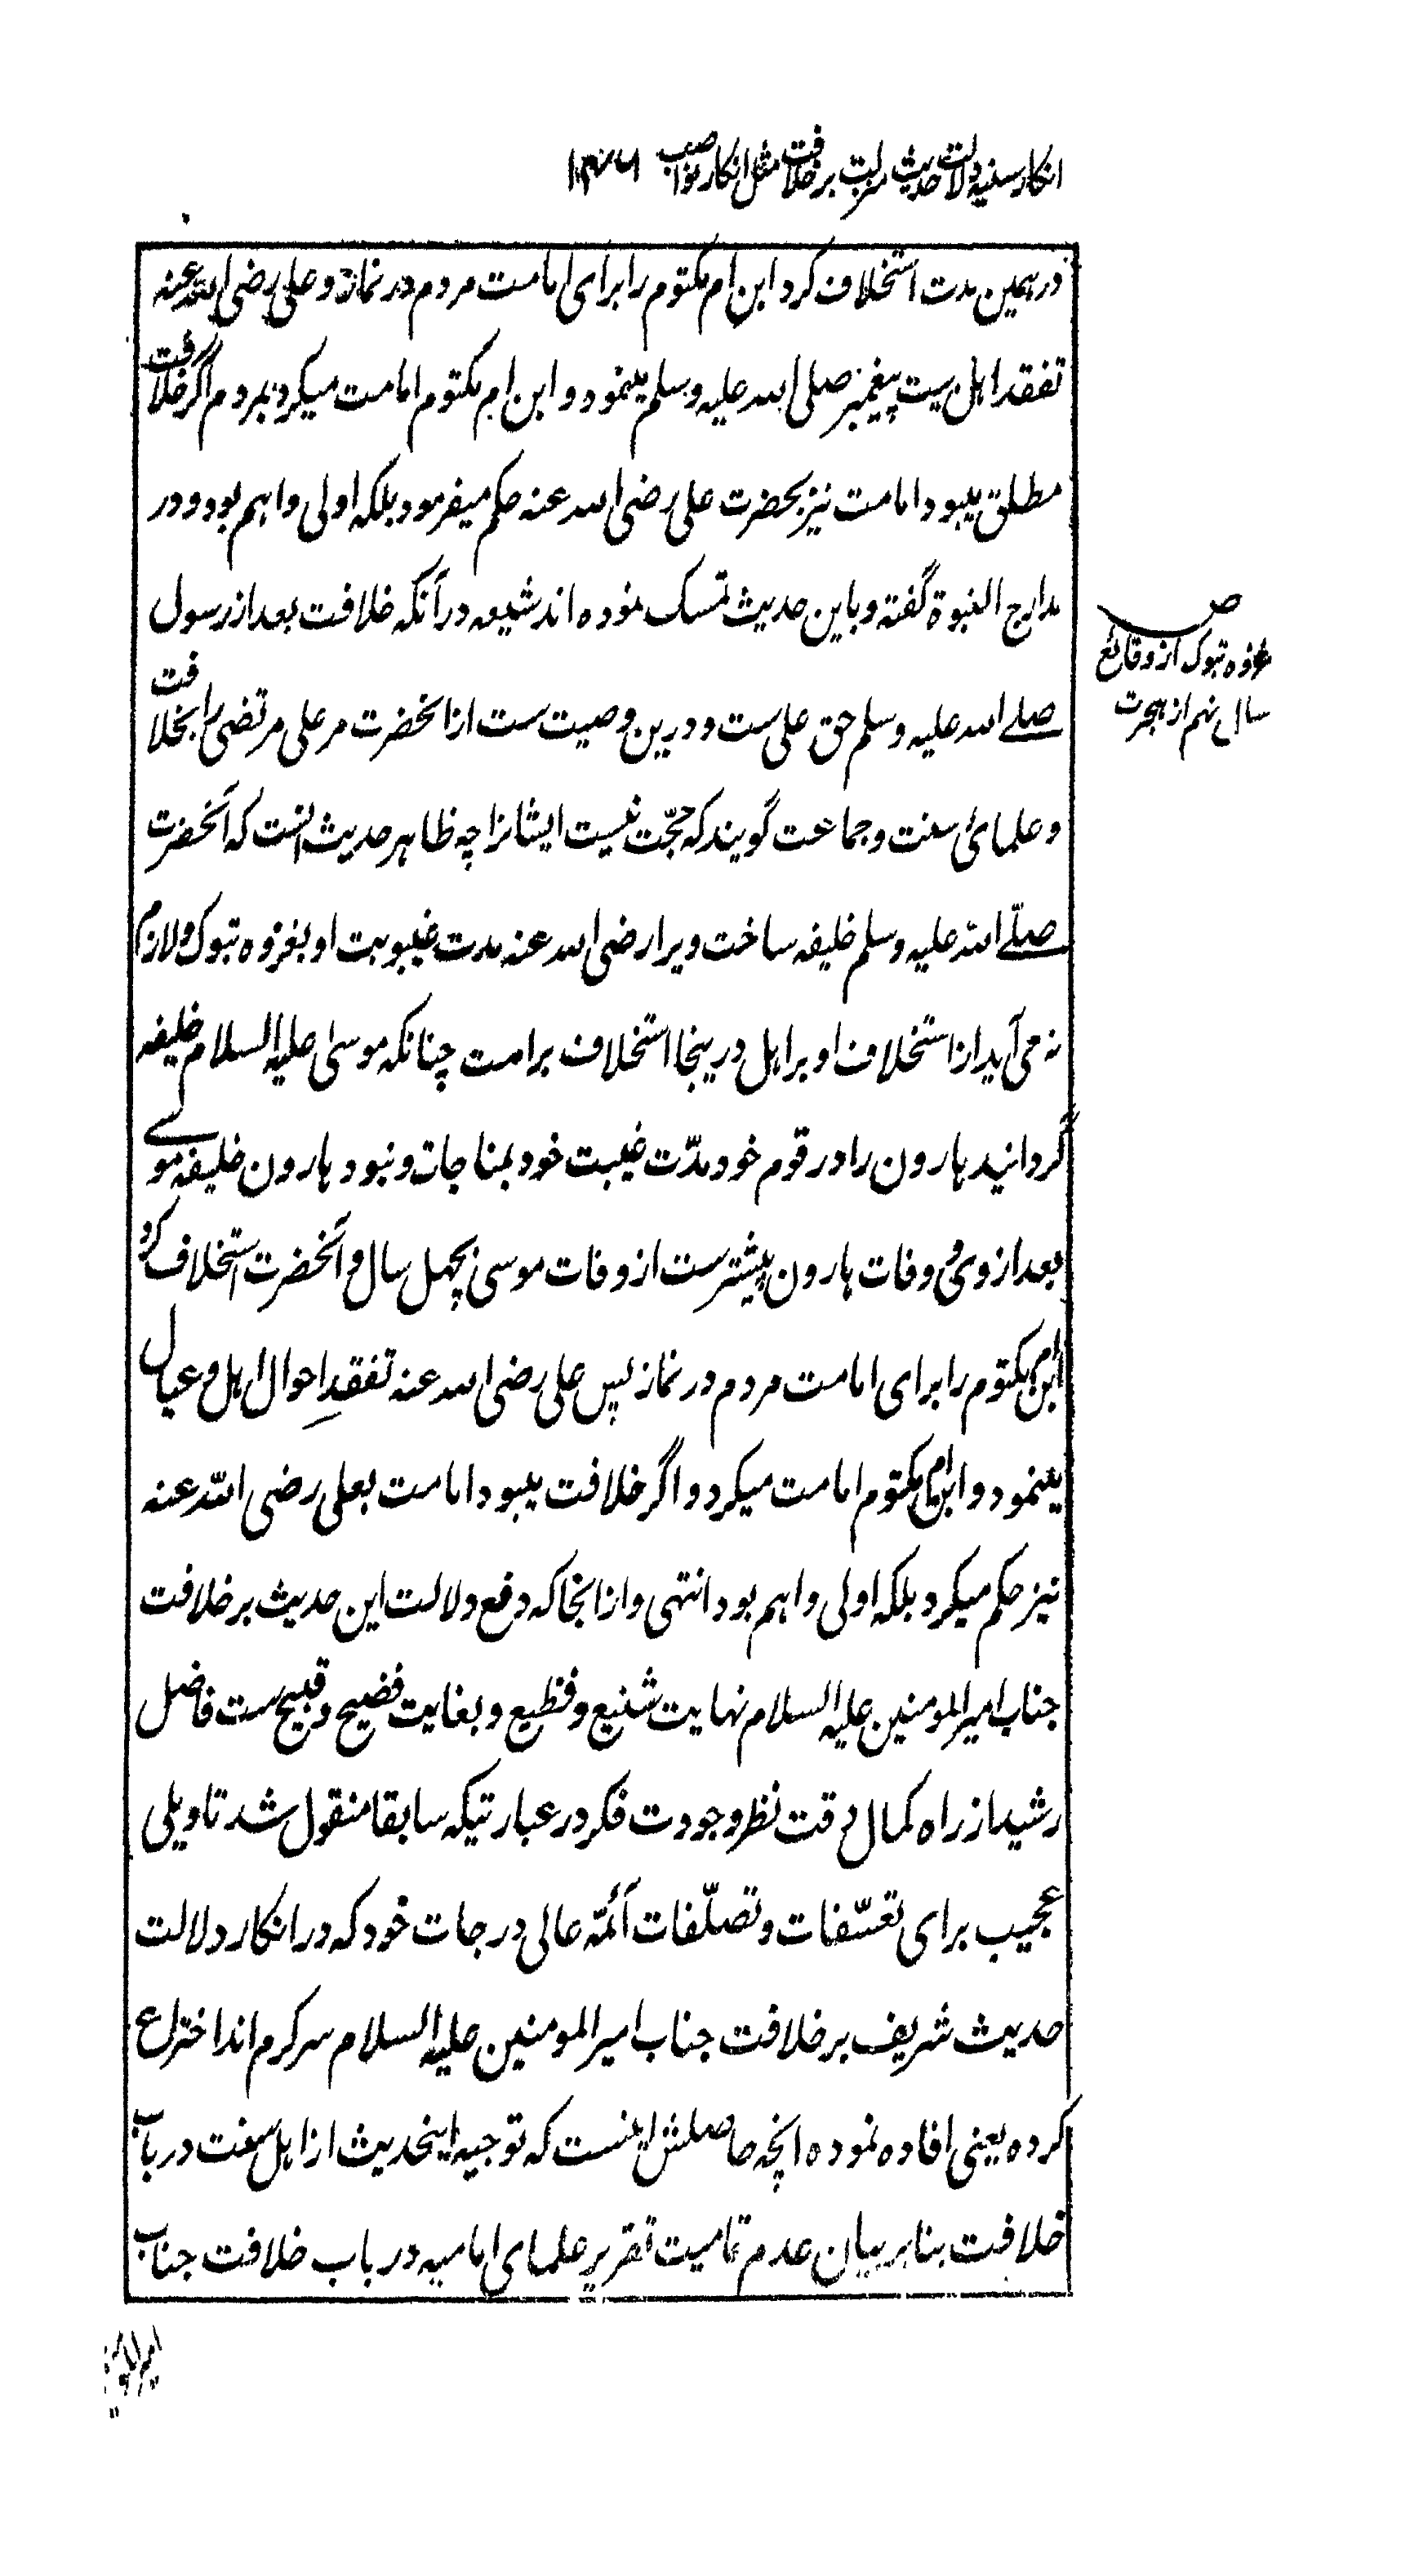 انکار سنیه دلالت حدیث منزلت بر خلافت مثل انکار نواصب
در همین مدت استخلاف کرد ابن ام مکتوم را برای امامت مردم در نماز و علی رضی الله عنه
تفقد اهل بیت پیغمبر صلی الله علیه وسلم مینمود و ابن ام مکتوم امامت میکرد بمردم اگر خلافت
مطلق میبود امامت نیز بحضرت علی رضی الله عنه حکم میفرمود بلکه اولی و اهم بود و در
مدارج النبوة گفته و باین حدیث تمسک نموده اند شیعه در آنکه خلافت بعد از رسول
صلے الله علیه وسلم حق علی ست و درین وصیت ست از انحضرت مر علی مرتضی را بخلافت
و علمائ سنت و جماعت گویند که حجّت نیست ایشانرا چه ظاهر حدیث انست که آنحضرت
صلّے الله علیه وسلم خلیفه ساخت ویرا رضی الله عنه مدت غیبوبت او بغزوه تبوک و لازم
نه می آید از استخلاف او بر اهل درینجا استخلاف بر امت چنانکه موسی علیه السلام خلیفه
گردانید هارون را در قوم خود مدّت غیبت خود بمناجات و نبود هارون خلیفه موسے
بعد از وی و وفات هارون پیشترست از وفات موسی بچهل سال و آنحضرت استخلاف کرد
ابن ام مکتوم را برای امامت مردم در نماز پس علی رضی الله عنه تفقدِ احوال اهل و عیال
مینمود و ابن ام مکتوم امامت میکرد و اگر خلافت میبود امامت بعلی رضی الله عنه
نیز حکم میکرد بلکه اولی و اهم بود انتهی و از انجا که دفع دلالت این حدیث بر خلافت
جناب امیر المومنین علیه السلام نهایت شنیع و فظیع و بغایت فضیح و قبیح ست فاضل
رشید از راه کمال دقت نظر و جودت فکر در عبارتیکه سابقا منقول شد تاویلی
عجیب برای تعسّفات و تصلّفات آئمّه عالی درجات خود که در انکار دلالت
حدیث شریف بر خلافت جناب امیر المومنین علیه السلام سرگرم اند اختراع
کرده یعنی افاده نموده انچه حاصلش اینست که توجیه اینحدیث از اهل سنت در باب
خلافت بنا بر بیان عدم تمامیت تقریر علمای امامیه در باب خلافت جناب
ص
غزوه تبوک از وقائع
سال نهم از هجرت